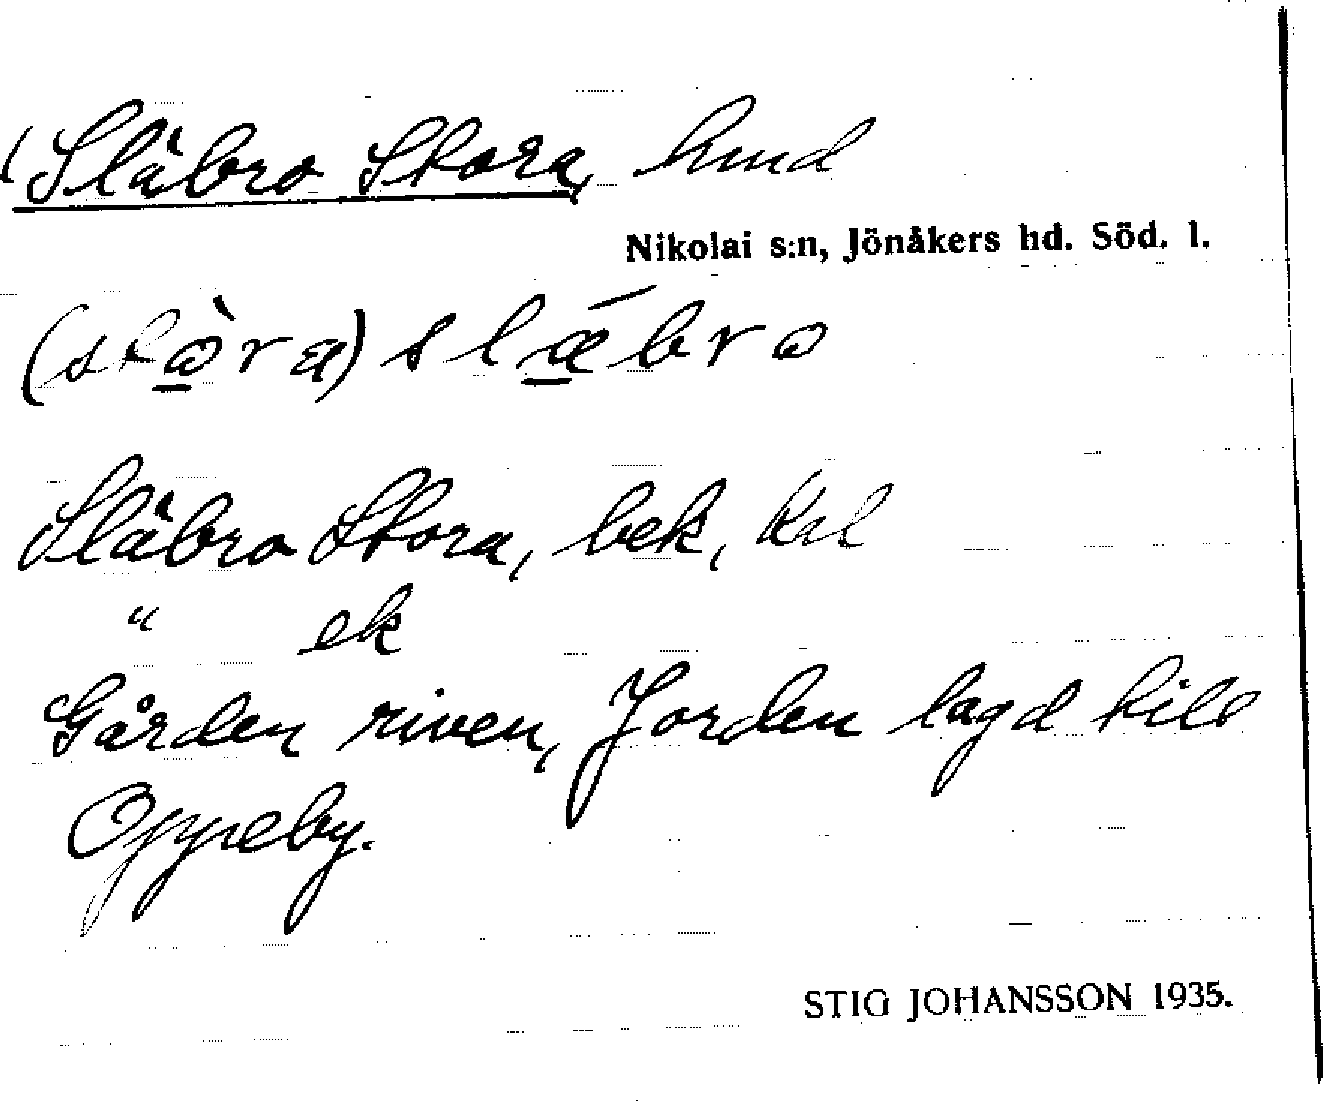 Släbro Stora, hmd
Nikolai s:n, Jönåkers hd. Söd. l.
(stὼra) slǽbrω
Släbro Stora, bek, kil
" ek
Gården riven, Jorden lagd till
Oppeby.
STIG JOHANSSON 1935.